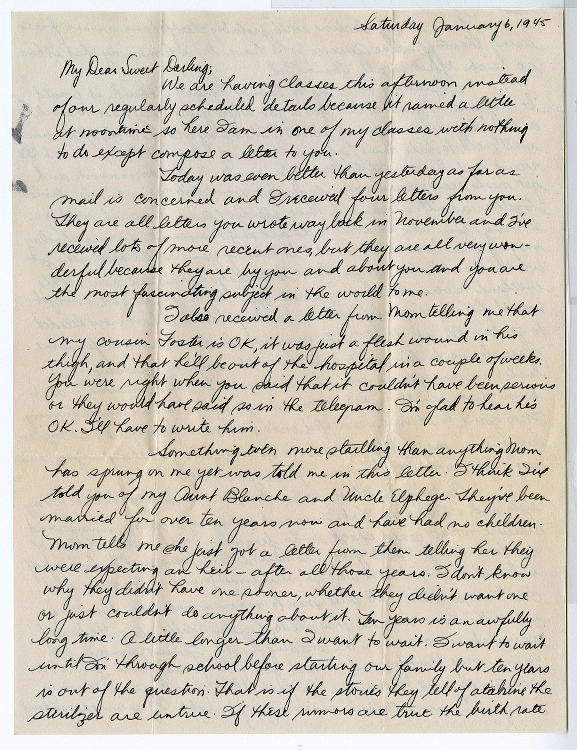 Saturday January 6, 1945
My Dear Sweet Darling;
We are having classes this afternoon instead
of our regularly scheduled details because it rained a little
at noontime so here I am in one of my classes with nothing
to do except compose a letter to you.
Today was even better than yesterday as far as
mail is concerned and I received four letters from you.
They are all letters you wrote way back in November and I've
received lots of more recent ones, but they are all very won-
derful because they are by you and about you and you are
the most fascinating subject in the world to me.
I also received a letter from Mom telling me that
my cousin Foster is OK, it was just a flesh wound in his
thigh, and that he'll be out of the hospital in a couple of weeks.
You were right when you said that it couldn't have been serious
or they would have said so in the telegram. I'm glad to hear he's
OK. I'll have to write him.
Something even more startling than anything Mom
has sprung on me yet was told me in this letter. I think I've
told you of my Aunt Blanche and Uncle Elphege. They've been
married for over ten years now and have had no children.
Mom tells me she just got a letter from them telling her they
were expecting an heir - after all those years. I don't know
why they didn't have one sooner, whether they didn't want one
or just couldn't do anything about it. Ten years is an awfully
long time. A little longer than I want to wait. I want to wait
until I'm through school before starting our family but ten years
is out of the question. That is if the stories they tell of atabrine the
sterilizer are untrue. If these rumors are true the birth rate